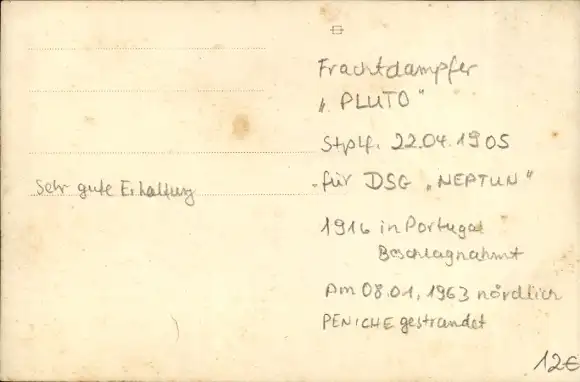 Frachtdampfer
"PLUTO"
Stplf. 22.04.1905
für DSG "NEPTUN"
Sehr gute Erhaltung
1916 in Portugal
Beschlagnahmt
Am 08.01.1963 nördlich
PENICHE gestrandet
12€